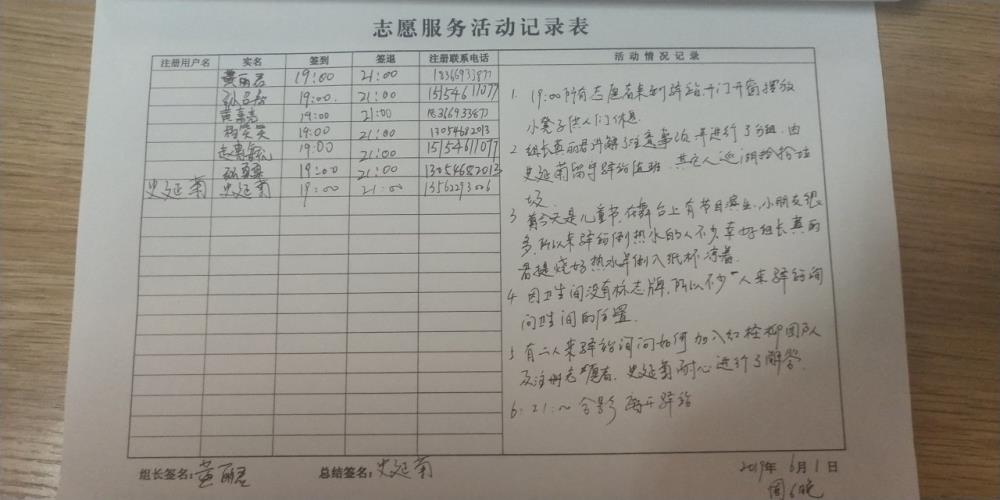 志愿服务活动记录表
注册用户名 实名 签到 签退 注册联系电话 活动情况记录
黄丽君 19:00 21:00 18366933877
19:00. 21:00 15154611077
19:00 21:00 18366933877
杨笑笑 19:00 21:00 13054682013
19:00 21:00 15154611077
19:00 21:00 13054682013
史延菊 史延菊 19:00 21:00 13562293006
1. 19:00所有志愿者来到驿站开门开窗摆放
小凳子供人们休息.
2 组长黄丽君讲解了注意事项并进行了分组.由
史延菊留守驿站值班.其它人巡湖捡捡垃
圾.
3 今天是儿童节.在舞台上有节目演出.小朋友很
多.所以来驿站倒热水的人不少.幸好组长黄丽
君提烧好热水早倒入纸杯凉着.
4 因卫生间没有标志牌.所以不少人来驿站询
问卫生间的位置.
5 有二人来驿站询问如何加入红柽柳团队
及注册志愿者.史延菊耐心进行了解答.
6: 21:00 合影 离开驿站
组长签名:黄丽君 总结签名:史延菊 2019年6月1日
周6晚